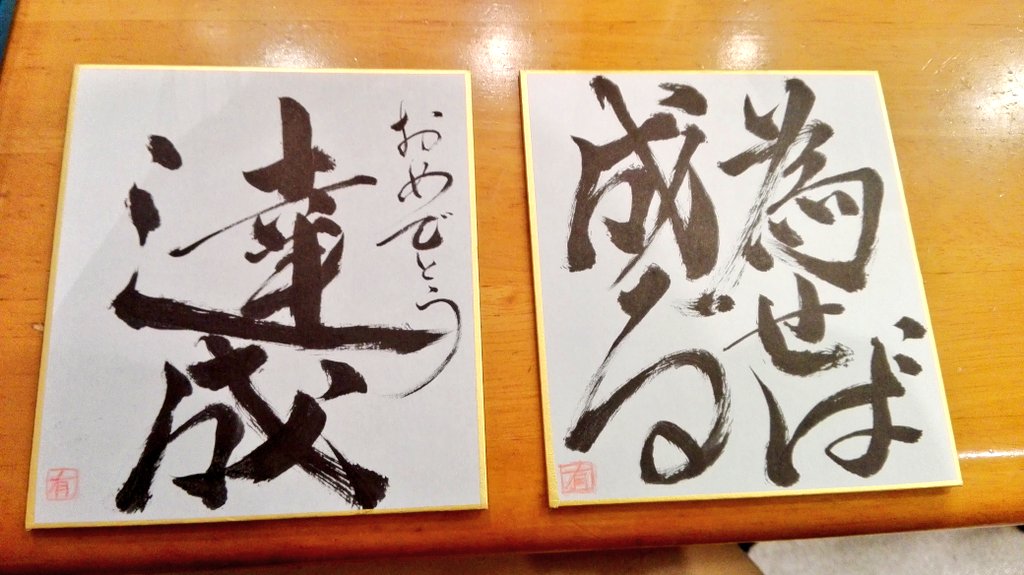 おめでとう
達成
有
為せば
成る
有